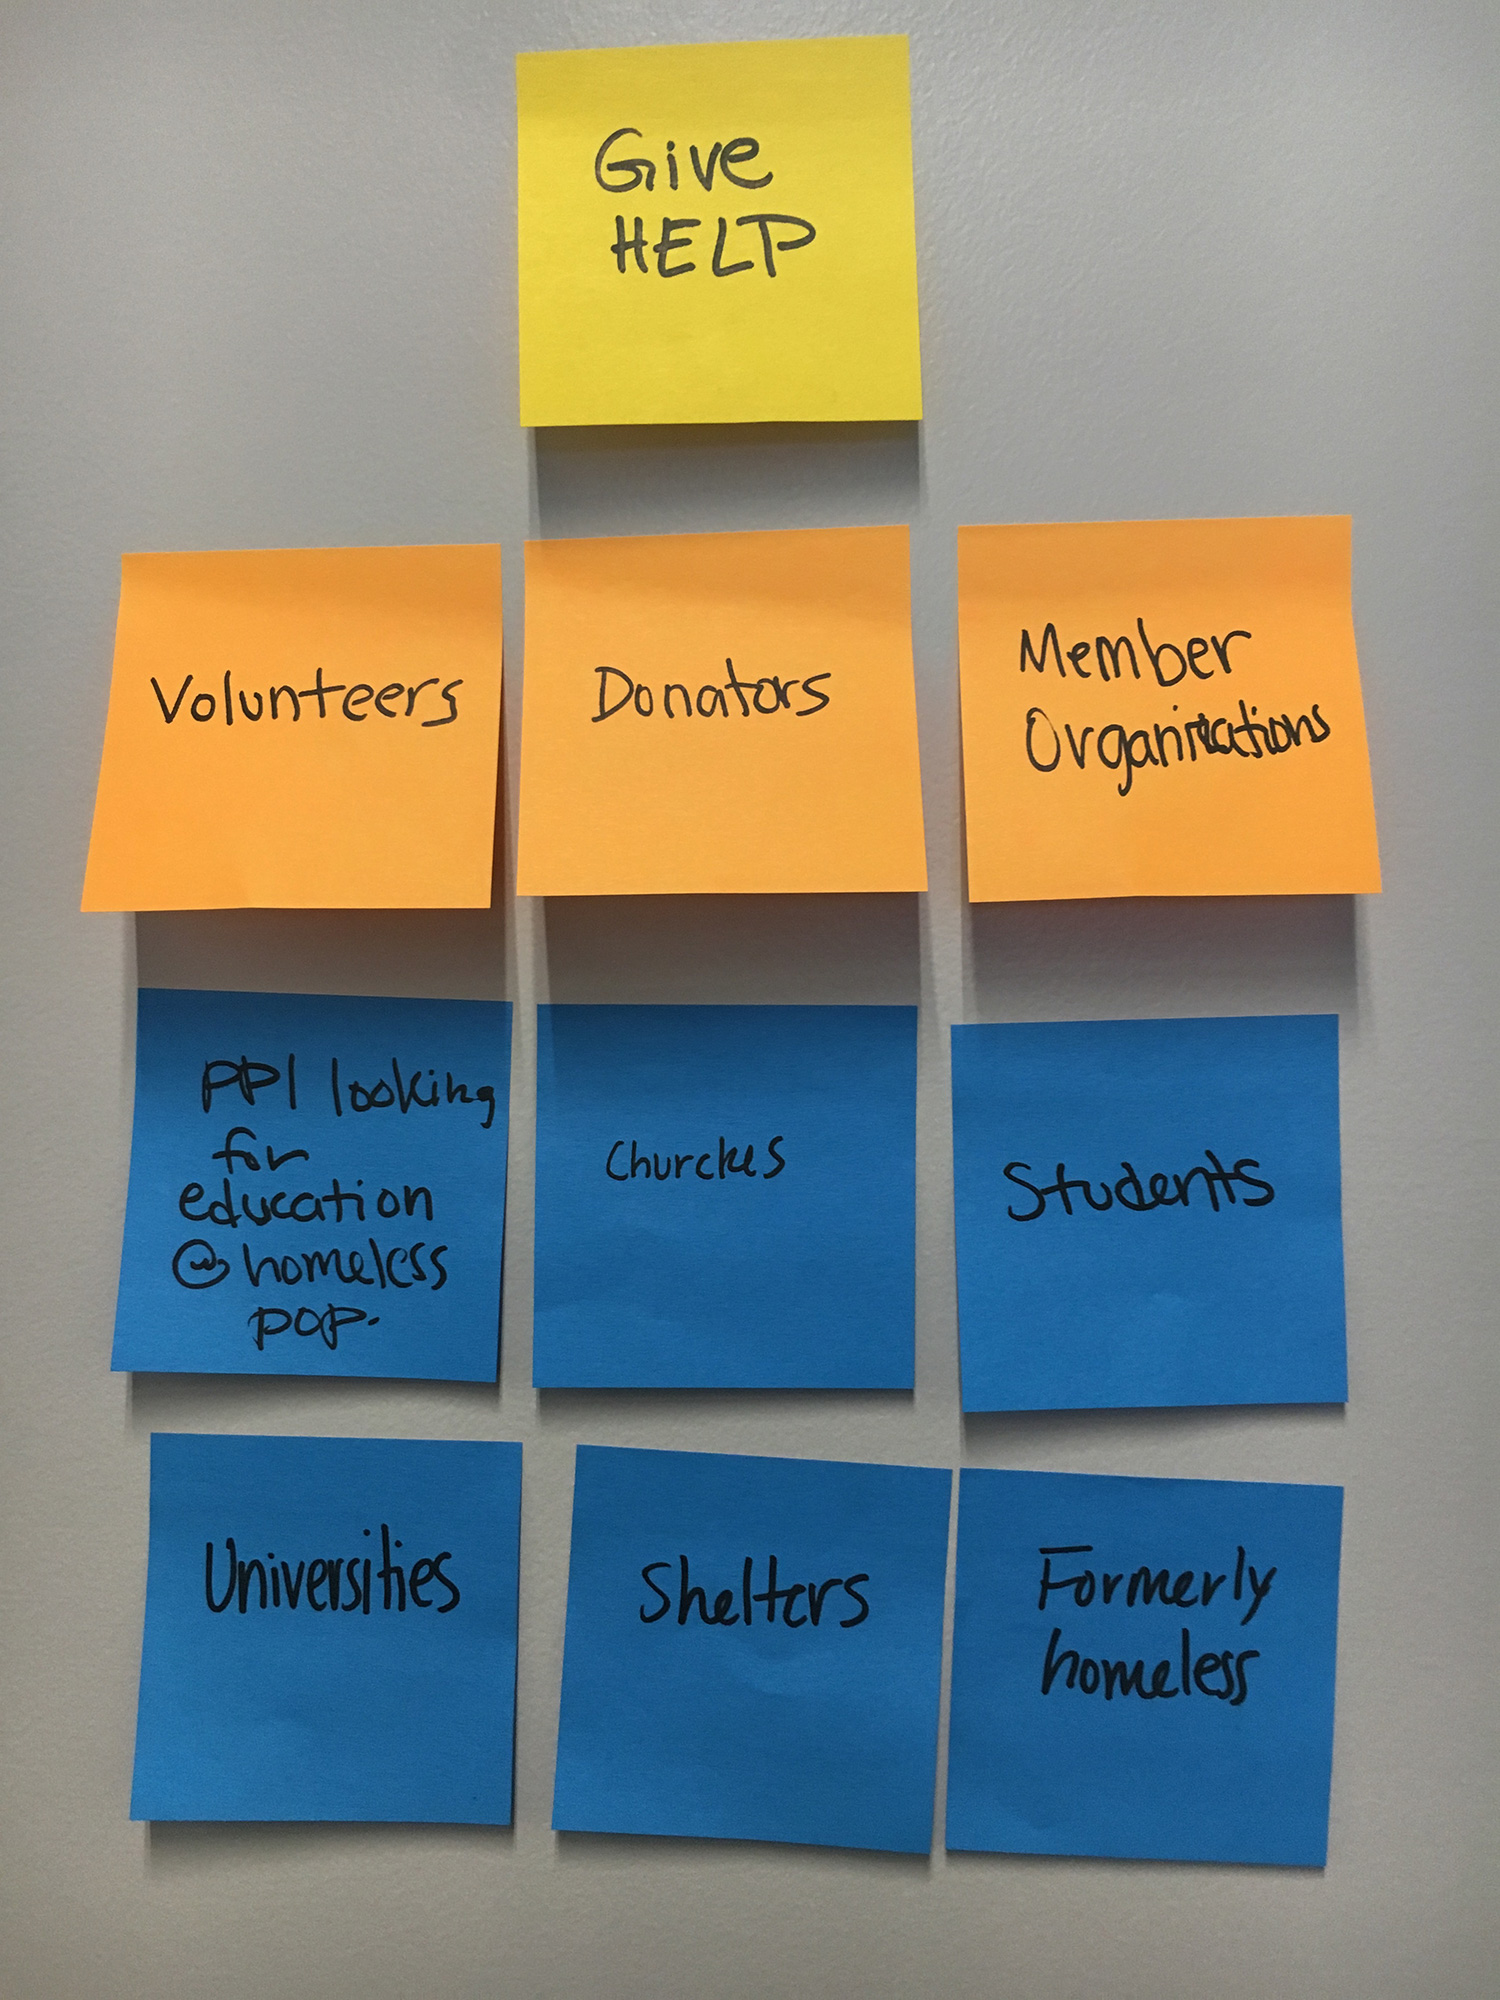 Give
HELP
Volunteers
Donators
Member
Organizations
PPl looking
for
education
@ homeless
pop.
Churches
Students
Universities
Shelters
Formerly
homeless